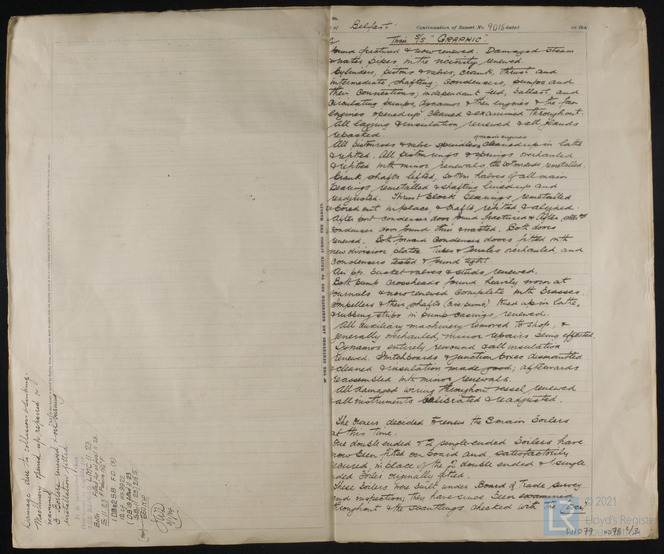 Belfast Continuation of Report No. 9015 dated on the
Twin S/S "GRAPHIC"
found fractured & now renewed. Damaged steam
& water pipes in the vicinity renewed.
Cylinders, pistons & valves, crank, thrust and
intermediate shafting, condensers, pumps and
their connections; independent feed, ballast, and
circulating pumps, dynamos & their engines & the fan
engines opened up cleaned & examined throughout.
All lagging & insulation renewed & all glands
repacked.
All piston rods & valve spindles cleaned up in lathe
& refitted. All piston rings & springs overhauled
& refitted with minor renewals,
Crank shafts lifted, bottom halves of all main
bearings remetalled & shafting lined up and
readjusted. Thrust block bearings remetalled
& bored out in place & shafts refitted & aligned.
After port condenser door found fractured & after
condenser door found thin & wasted. Both doors
renewed. Both forward condenser doors fitted with
new division plates. Tubes & ferrules overhauled, and
condensers tested & found tight.
Air p/p bucket valves & studs, renewed.
Both pump crossheads found heavily worn at
journals & now renewed complete with brasses.
Impellers & their shafts (circ pump) trued up in lathe,
& rubbing strips in pump casings renewed.
All auxiliary machinery removed to shop, &
generally overhauled, minor repairs being effected.
Dynamos entirely rewound & all insulation
renewed. Switchboards & junction boxes dismantled
& cleaned & insulation made good; afterwards
reassembled with minor renewals.
All damaged wiring throughout vessel renewed
all instruments calibrated & readjusted.
The owners decided to renew the 3 main boilers
at this time.
One double ended & 2 single-ended boilers have
now been fitted on board and satisfactorily
secured in place of the 2 double ended & single
ended boiler originally fitted.
These boilers was built under Board of Trade survey
and inspection, they have since been examined
throughout & the scantlings checked with the
Damage due to collision & sinking.
Machinery opened up, repaired &
renewed
3 Boilers renewed &
installation fitted
© 2021
Lloyd's Register